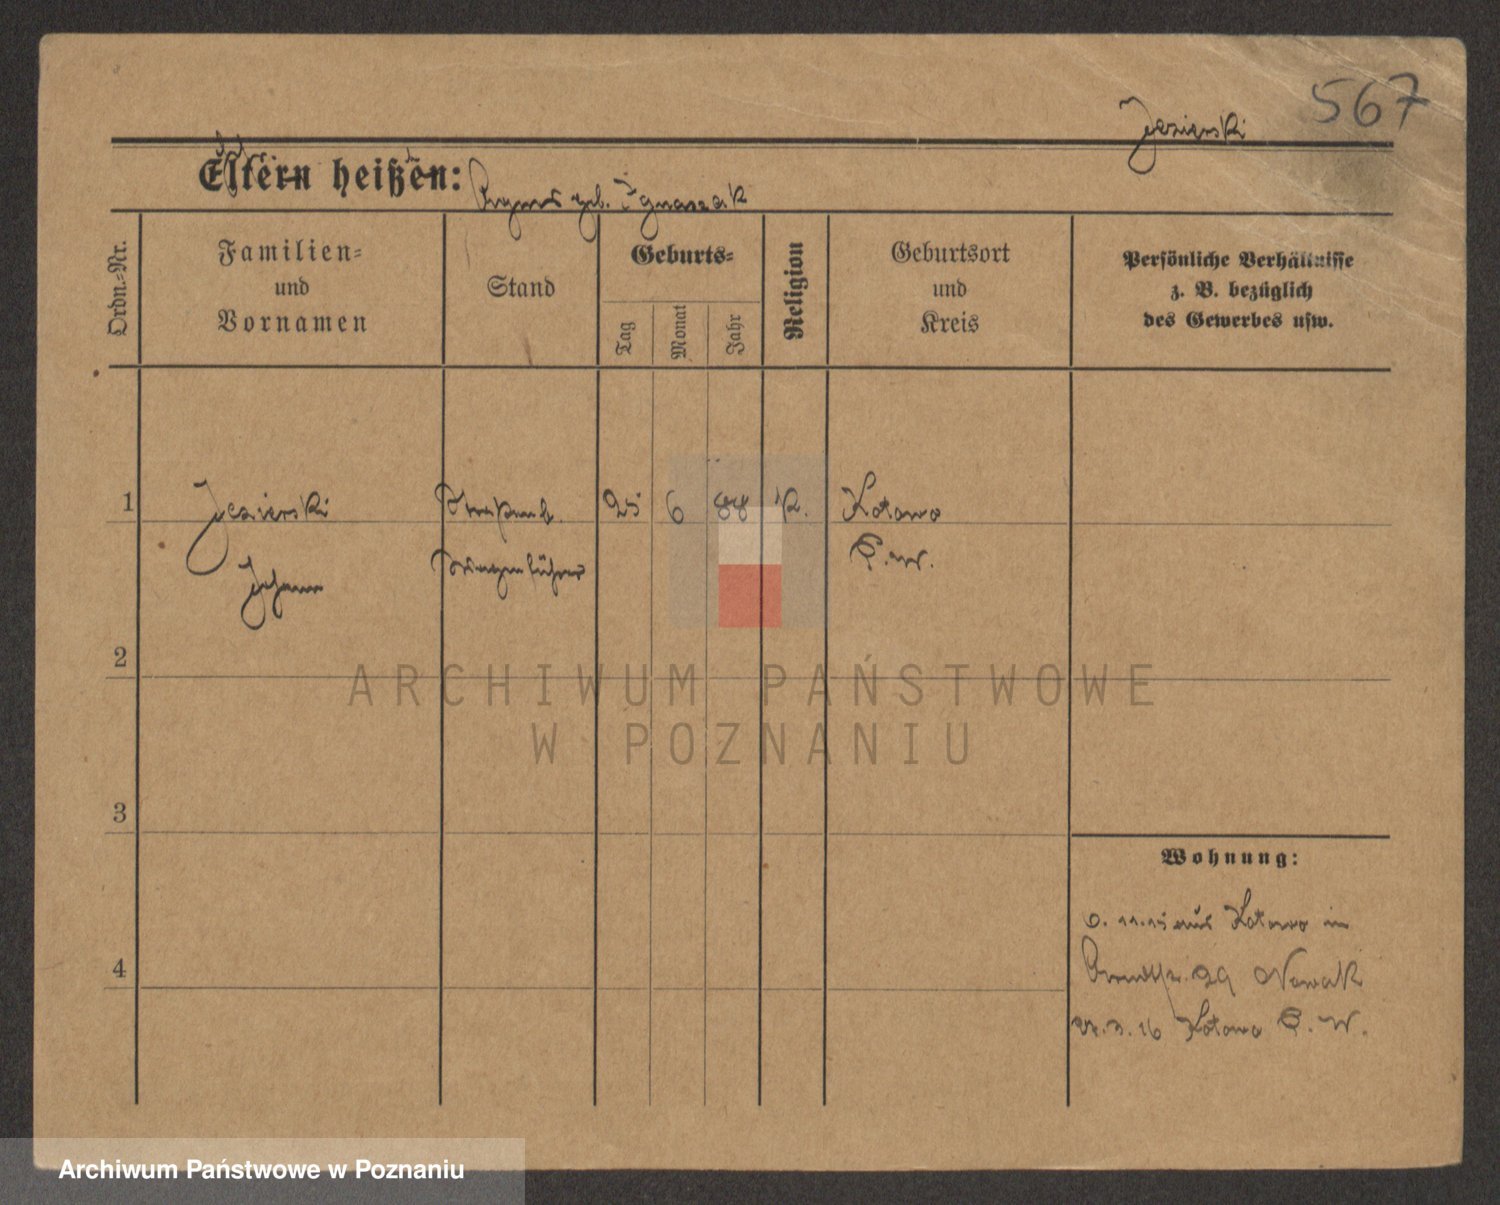 567
Jezierski
Eltern heißen:
geb. Ignaszak
Ordn.-Nr.
Familien-
und
Vornamen
Stand
Geburts-
Tag
Monat
Jahr
Religion
Geburtsort
und
Kreis
Persönliche Verhältnisse
z. B. bezüglich
des Gewerbes usw.
1
Jezierski
Johann
Straßenb.
Wagenführer
25
6
88
K.
Kotowo
P. W.
2
3
4
Wohnung:
6. 11. 15 aus Kotowo in
29 Nowak
3. 16 Kotowo P. W.
ARCHIWUM PAŃSTWOWE
W POZNANIU
Archiwum Państwowe w Poznaniu